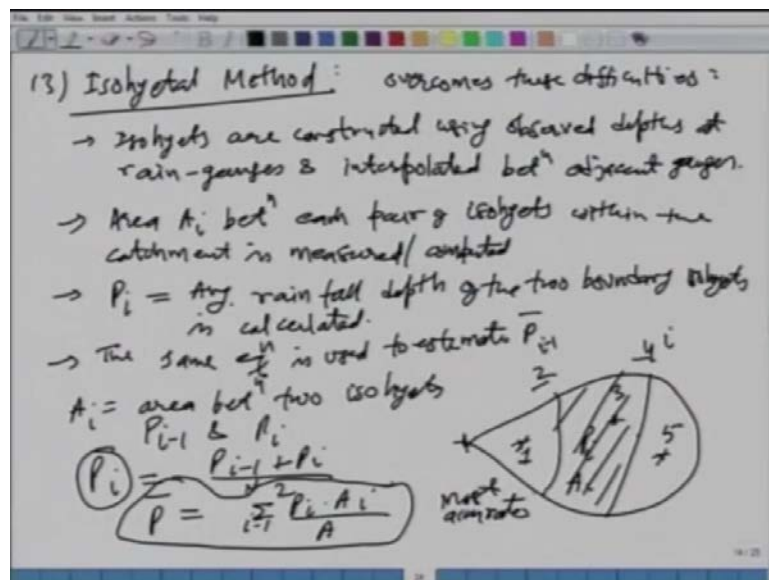 File Edit View Insert Actions Tools Help
(3) Isohyetal Method: overcomes these difficulties:
→ Isohyets are constructed using observed depths at
rain-gauges & interpolated betⁿ adjacent gauges.
→ Area Ai betⁿ each pair of isohyets within the
catchment is measured/computed
→ Pi = Avg. rainfall depth of the two boundary isohyets
is calculated.
→ The same eqⁿ is used to estimate P̄
i-1
i
2
4
Ai = area betⁿ two isohyets
Pi-1 & Pi
3
1
Pi
5
Pi = Pi-1 + Pi / 2
Ai
P̄ = Σ Pi · Ai / A
i=1
Most accurate